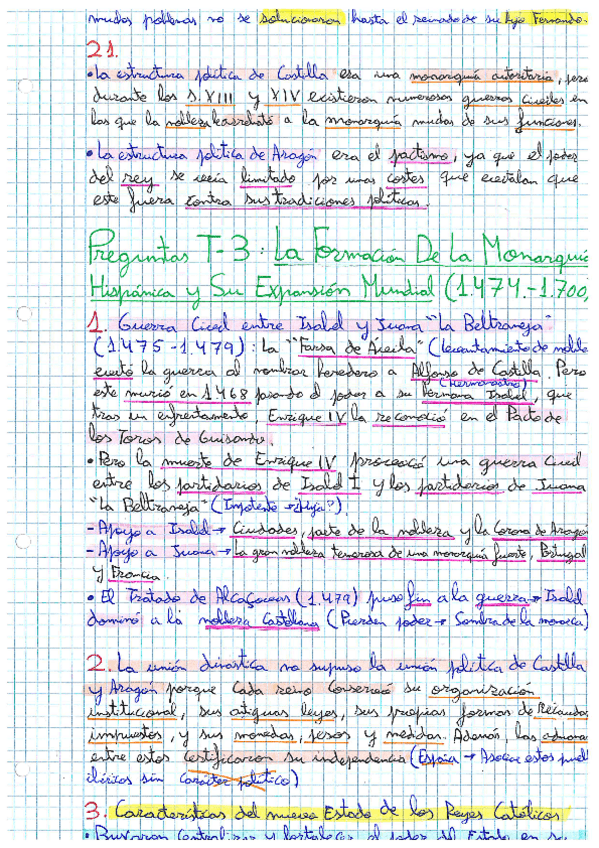 muchos problemas no se solucionaron hasta el reinado de su hijo Fernando.
21.
• La estructura política de Castilla era una monarquía autoritaria, pero
durante los s. XIII y XIV existieron numerosas guerras civiles en
las que la nobleza le arrebató a la monarquía muchas de sus funciones.
• La estructura política de Aragón era el pactismo, ya que el poder
del rey se veía limitado por unas cortes que evitaban que
este fuera contra sus tradiciones políticas.
Preguntas T-3: La Formación De La Monarquía
Hispánica y Su Expansión Mundial (1.474.-1.700)
1. Guerra Civil entre Isabel y Juana "La Beltraneja"
(1475-1.479): La "Farsa de Ávila" (levantamiento de noble
evitó la guerra al nombrar heredero a Alfonso de Castilla. Pero
este murió en 1468 pasando el poder a su hermana Isabel, que
(Hermanastra)
tras un enfrentamiento, Enrique IV la reconoció en el Pacto de
los Toros de Guisando.
• Pero la muerte de Enrique IV provocó una guerra civil
entre los partidarios de Isabel I y los partidarios de Juana
"La Beltraneja" (Impotente → ¿hija?).
- Apoyo a Isabel → Ciudades, parte de la nobleza y la Corona de Aragó
- Apoyo a Juana → La gran nobleza temerosa de una monarquía fuerte, Portugal
y Francia.
• El Tratado de Alcaçovas (1.479) puso fin a la guerra → Isabel
dominó a la nobleza Castellana (Pierden poder → Sombra de la monarca)
2. La unión dinástica no supuso la unión política de Castilla
y Aragón porque cada reino conservó su organización
institucional, sus antiguas leyes, sus propias formas de Recaudar
impuestos, y sus monedas, pesos y medidas. Además, las aduana
entre estos certificaron su independencia (España → Asocia estos puebl
ibéricos sin carácter político)
3. Características del nuevo Estado de los Reyes Católicos
• Buscaron centralizar y fortalecer el poder del Estado en su